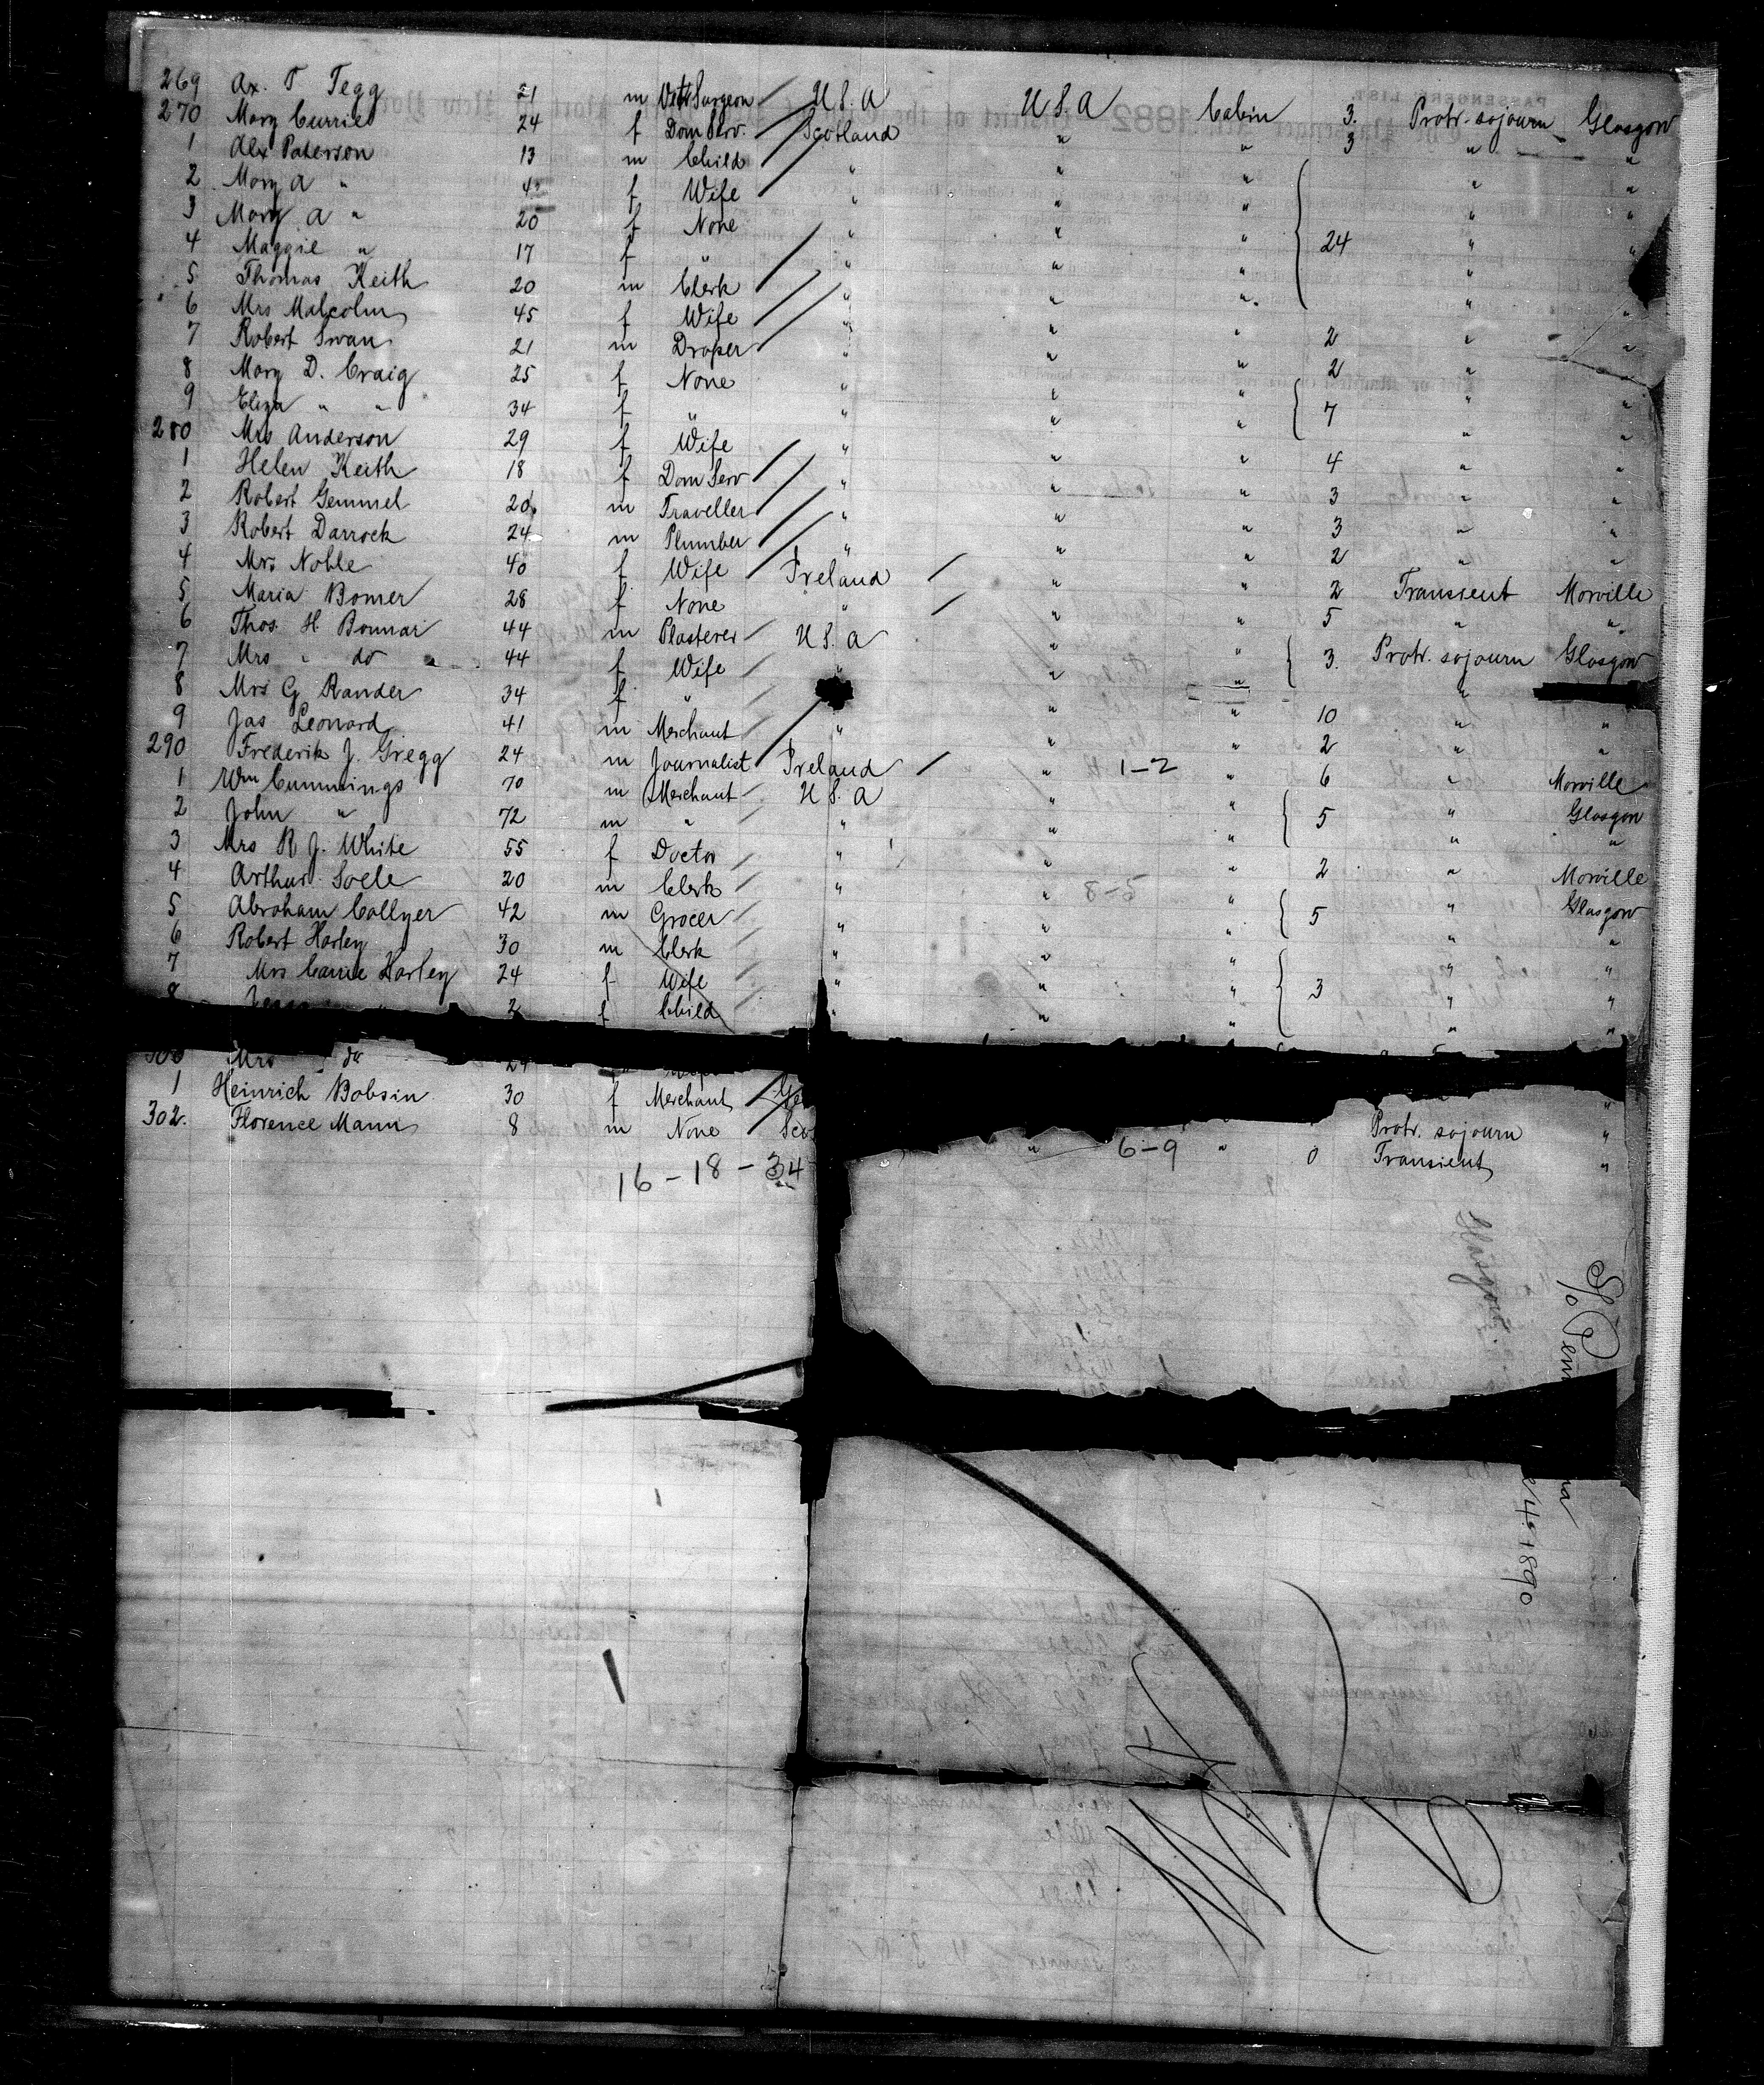 269 Ax. T Tegg 21 m Vet Surgeon U.S.A U.S.A Cabin 3. Protr. sojourn Glasgow
270 Mary Currie 24 f Dom Serv. Scotland " " 3 " "
1 Alex Paterson 13 m Child " " " "
2 Mary A " f Wife " " " " "
3 Mary A " 20 f None " " " 24 " "
4 Maggie " 17 f " " " " " "
5 Thomas Keith 20 m Clerk " " " " "
6 Mrs Malcolm 45 f Wife " " " 2 " "
7 Robert Swan 21 m Draper " " " 2 " "
8 Mary D. Craig 25 f None " " " 7 " "
9 Eliza " " 34 f " " " " " "
280 Mrs Anderson 29 f Wife " " " 4 " "
1 Helen Keith 18 f Dom Serv " " " 3 " "
2 Robert Gemmel 20 m Traveller " " " 3 " "
3 Robert Darroch 24 m Plumber " " " 2 " "
4 Mrs Noble 40 f Wife Ireland " " 2 Transient Morville
5 Maria Bomer 28 f None " " " 5 " "
6 Thos. H Bonnar 44 m Plasterer U.S.A " " 3. Protr. sojourn Glasgow
7 Mrs " do " 44 f Wife " " " "
8 Mrs G Rander 34 f " " " 10 " "
9 Jas Leonard 41 m Merchant " " " 2 " "
290 Frederik J. Gregg 24 m Journalist Ireland " 1-2 " 6 " Morville
1 Wm Cummings 70 m Merchant U.S.A " " 5 " Glasgow
2 John " 72 m " " " " " "
3 Mrs R J. White 55 f Doctor " " " 2 " Morville
4 Arthur Soele 20 m Clerk " " 8-5 " 5 " Glasgow
5 Abraham Collyer 42 m Grocer " " " " "
6 Robert Harley 30 m Clerk " " " 3 " "
7 Mrs Carrie Harley 24 f Wife " " " " "
8 " 2 f Child " " " " "
300 Mrs " do 24 Wife
1 Heinrich Bobsin 30 f Merchant Protr. sojourn "
302. Florence Mann 8 m None Sco " 6-9 " 0 Transient "
16-18-34
Glasgow
S/
1890